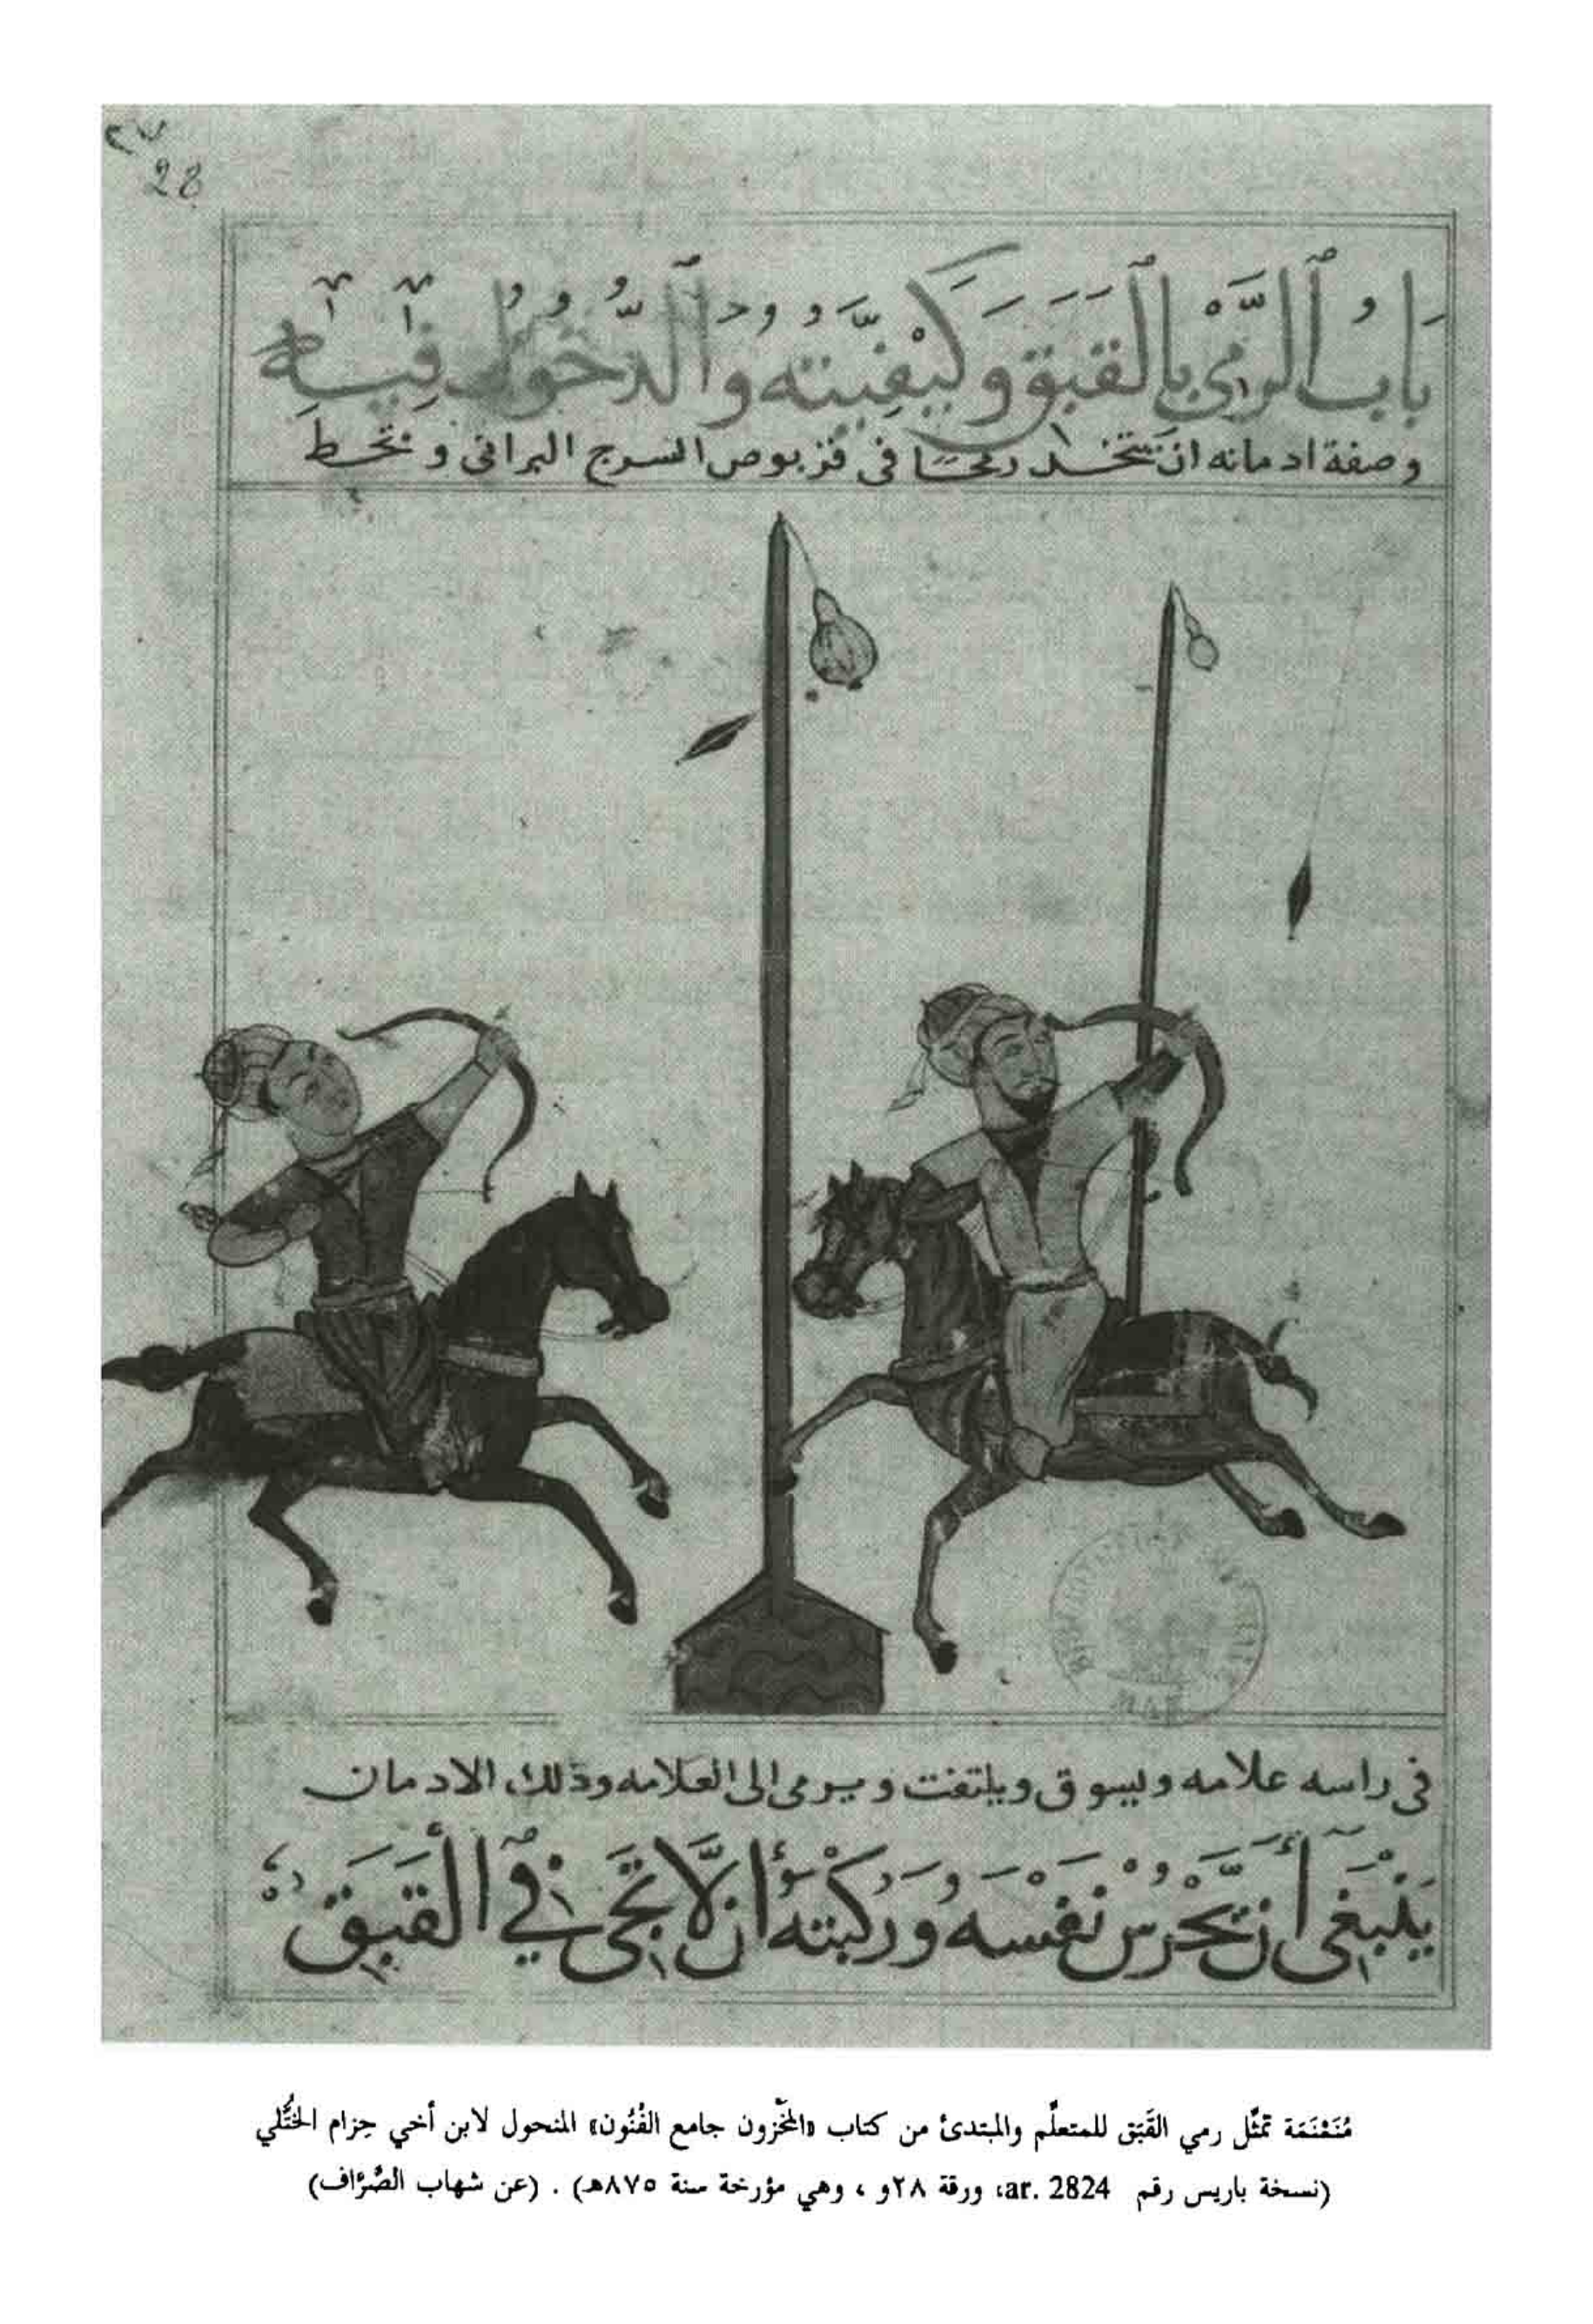 ٢٧
28
بَابُ ٱلرَّمْيِ بِالْقَبَقِ وَكَيْفِيَّتِهِ وَٱلدُّخُولُ فِيهِ
وصفة ادمانه ان يتخد رمحًا فى قربوص السرج البرانى و نحط
فى راسه علامه ويسوق ويلتفت ويرمى الى العلامه وذلك الادمان
يَنْبَغِى أَن يَحْرُسَ نَفْسَهُ وَرُكْبَتَهُ أَن لَّا تَجِى فِي ٱلْقَبَقِ
مُنَمْنَمَة تمثِّل رمي القَبَق للمتعلِّم والمبتدئ من كتاب «المَخْزون جامع الفُنُون» المنحول لابن أخي حِزام الخُتَّلي
(نسخة باريس رقم ar. 2824، ورقة ٢٨و ، وهي مؤرخة سنة ٨٧٥هـ) . (عن شهاب الصَّرَّاف)